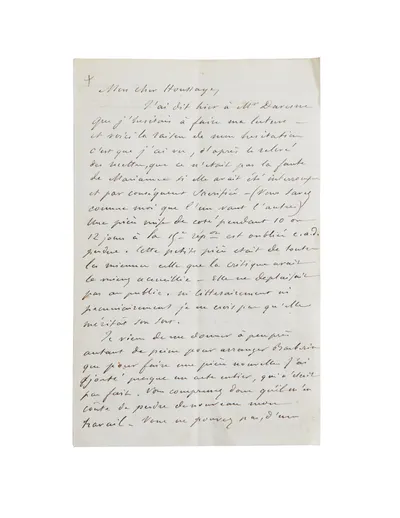 Mon cher Houssaye,
J'ai dit hier à Mr Davesne
que j'hésitais à faire ma lecture –
et voici la raison de mon hésitation
c'est que j'ai vu, d'après le relevé
des recettes, que ce n'était par la faute
de Marianne si elle avait été interrompue
et par conséquent sacrifiée – (vous savez
comme moi que l'un vaut l'autre)
Une pièce mise de coté pendant 10 ou
12 jours à la 15e repon est oubliée c. a. d.
perdue. Cette petite pièce était de toutes
les miennes celle que la critique avait
le mieux accueillie – elle ne déplaisait
pas au public. ni littérairement ni
pécuniairement je ne crois pas qu'elle
méritât son sort.
Je viens de me donner à peu près
autant de peine pour arranger
que pour faire une pièce nouvelle. J'ai
ajouté presque un acte entier, qui n'était
pas fait. Vous comprenez donc qu'il m'en
coûte de perdre de nouveau mon
travail – Vous ne pouvez pas, d'un